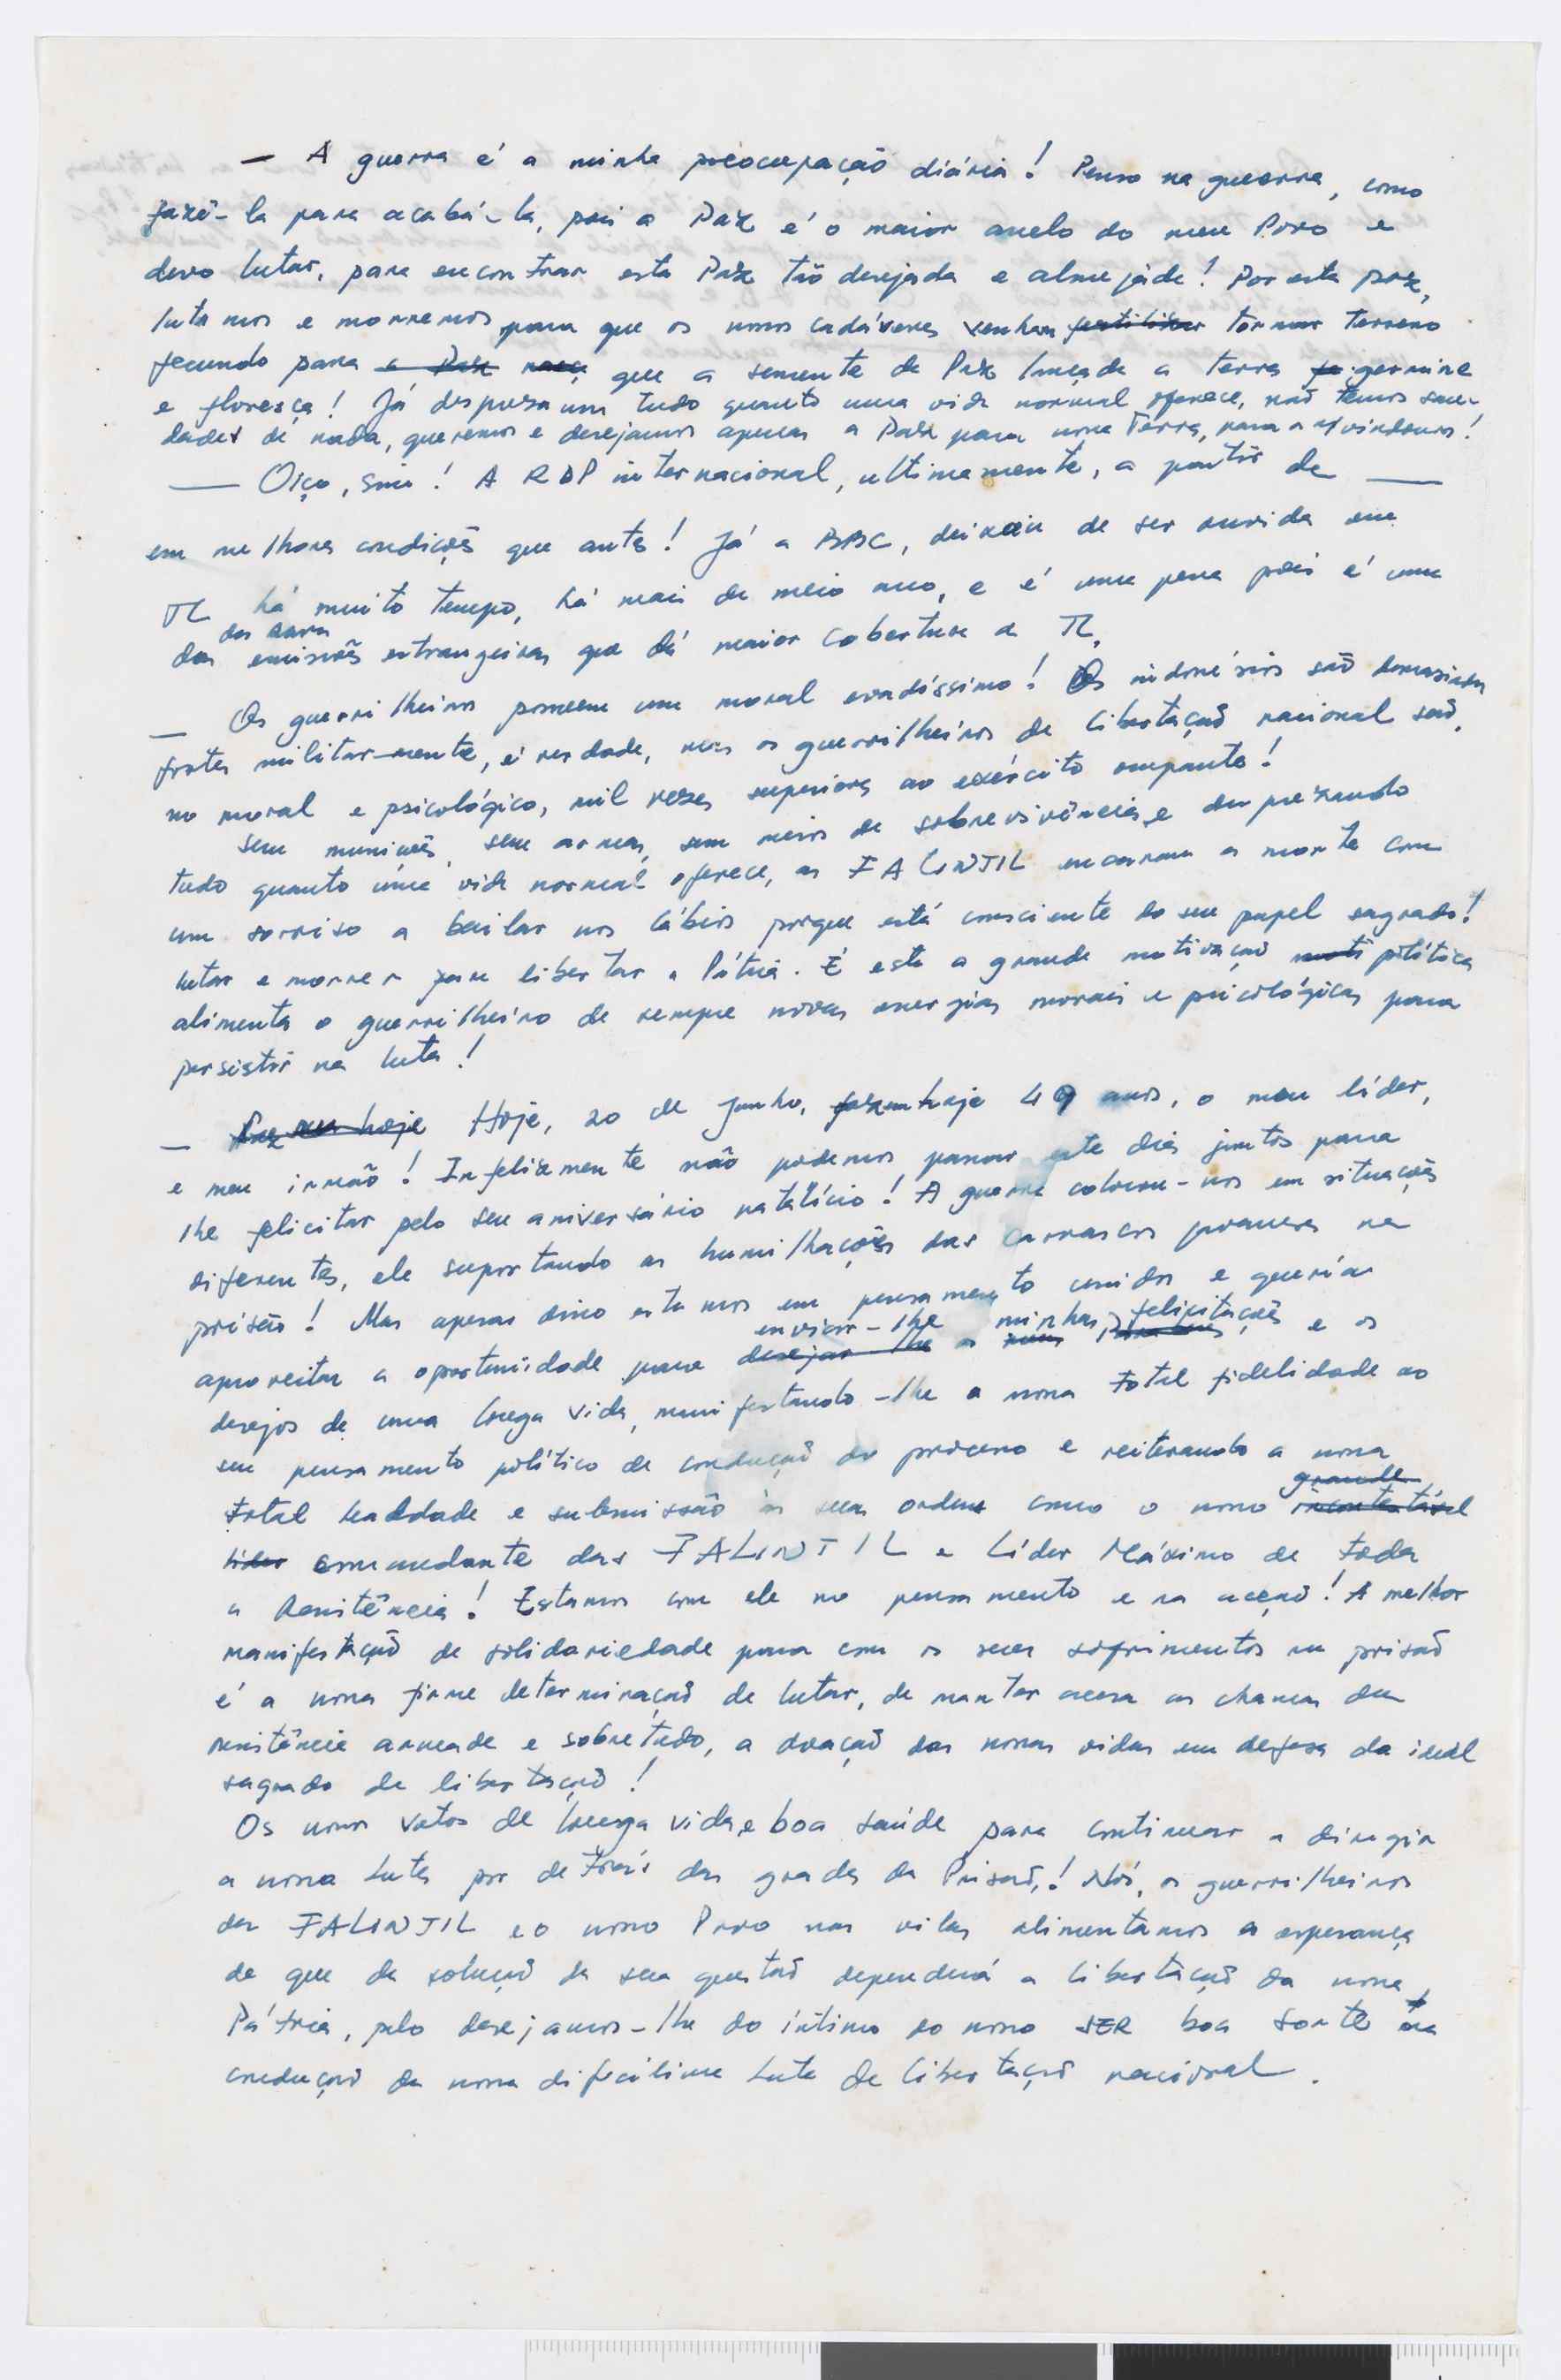 — A guerra é a minha preocupação diária! Penso na guerra, como
fazê-la para acabá-la, pois a Paz é o maior anelo do meu Povo e
devo lutar, para encontrar esta Paz tão desejada e almejada! Por esta paz,
lutamos e morremos para que os nossos cadáveres venham fertilizar tornar terreno
fecundo para a Paz nasça que a semente de Paz lançada a terra fe germine
e floresça! Já desprezamos tudo quanto uma vida normal oferece, não temos sau-
dades de nada, queremos e desejamos apenas a Paz para nossa Terra, para os vindouros!
— Oiço, sim! A RDP internacional, ultimamente, a partir de —
em melhores condições que antes! Já a BBC, deixou de ser ouvida em
TL há muito tempo, há mais de meio ano, e é uma pena pois é uma
das raras
das emissões estrangeiras que dá maior cobertura a TL.
— Os guerrilheiros possuem um moral elevadíssimo! Os indonésios são demasiado
fortes militar-mente, é verdade, mas os guerrilheiros de libertação nacional são,
no moral e psicológico, mil vezes superiores ao exército ocupante!
Sem munições, sem armas, sem meios de sobrevivência, e desprezando
tudo quanto uma vida normal oferece, as FALINTIL encaram a morte com
um sorriso a bailar nos lábios porque está consciente do seu papel sagrado!
lutar e morrer para libertar a Pátria. É esta a grande motivação moti política
alimenta o guerrilheiro de sempre novas energias morais e psicológicas para
persistir na luta!
— Faz seu hoje Hoje, 20 de Junho, fazem hoje 49 anos, o meu líder,
e meu irmão! Infelizmente não podemos passar este dia juntos para
lhe felicitar pelo seu aniversário natalício! A guerra colocou-nos em situações
diferentes, ele suportando as humilhações dos carrascos javaneses na
prisão! Mas apesar disso estamos em pensamento unidos e queria
enviar-lhe minhas felicitações
aproveitar a oportunidade para desejar-lhe as meus Parabens e os
desejos de uma longa vida, manifestando-lhe a nossa total fidelidade ao
seu pensamento político de condução do processo e reiterando a nossa
grande
total lealdade e submissão às suas ordens como o nosso incontestável
líder comandante das FALINTIL e Líder Máximo de toda
a Resistência! Estamos com ele no pensamento e na acção! A melhor
manifestação de solidariedade para com os seus sofrimentos na prisão
é a nossa firme determinação de lutar, de manter acesa as chamas da
resistência armada e sobretudo, a doação das nossas vidas em defesa da ideal
sagrado de libertação!
Os nossos votos de longa vida e boa saúde para continuar a dirigir
a nossa Luta por detrás das grades da Prisão! Nós, os guerrilheiros
das FALINTIL e o nosso Povo nas vilas alimentamos a esperança
de que da solução da sua questão dependerá a libertação da nossa
Pátria, pelo desejamos-lhe do íntimo do nosso SER boa sorte na
condução da nossa dificílima Luta de libertação nacional.